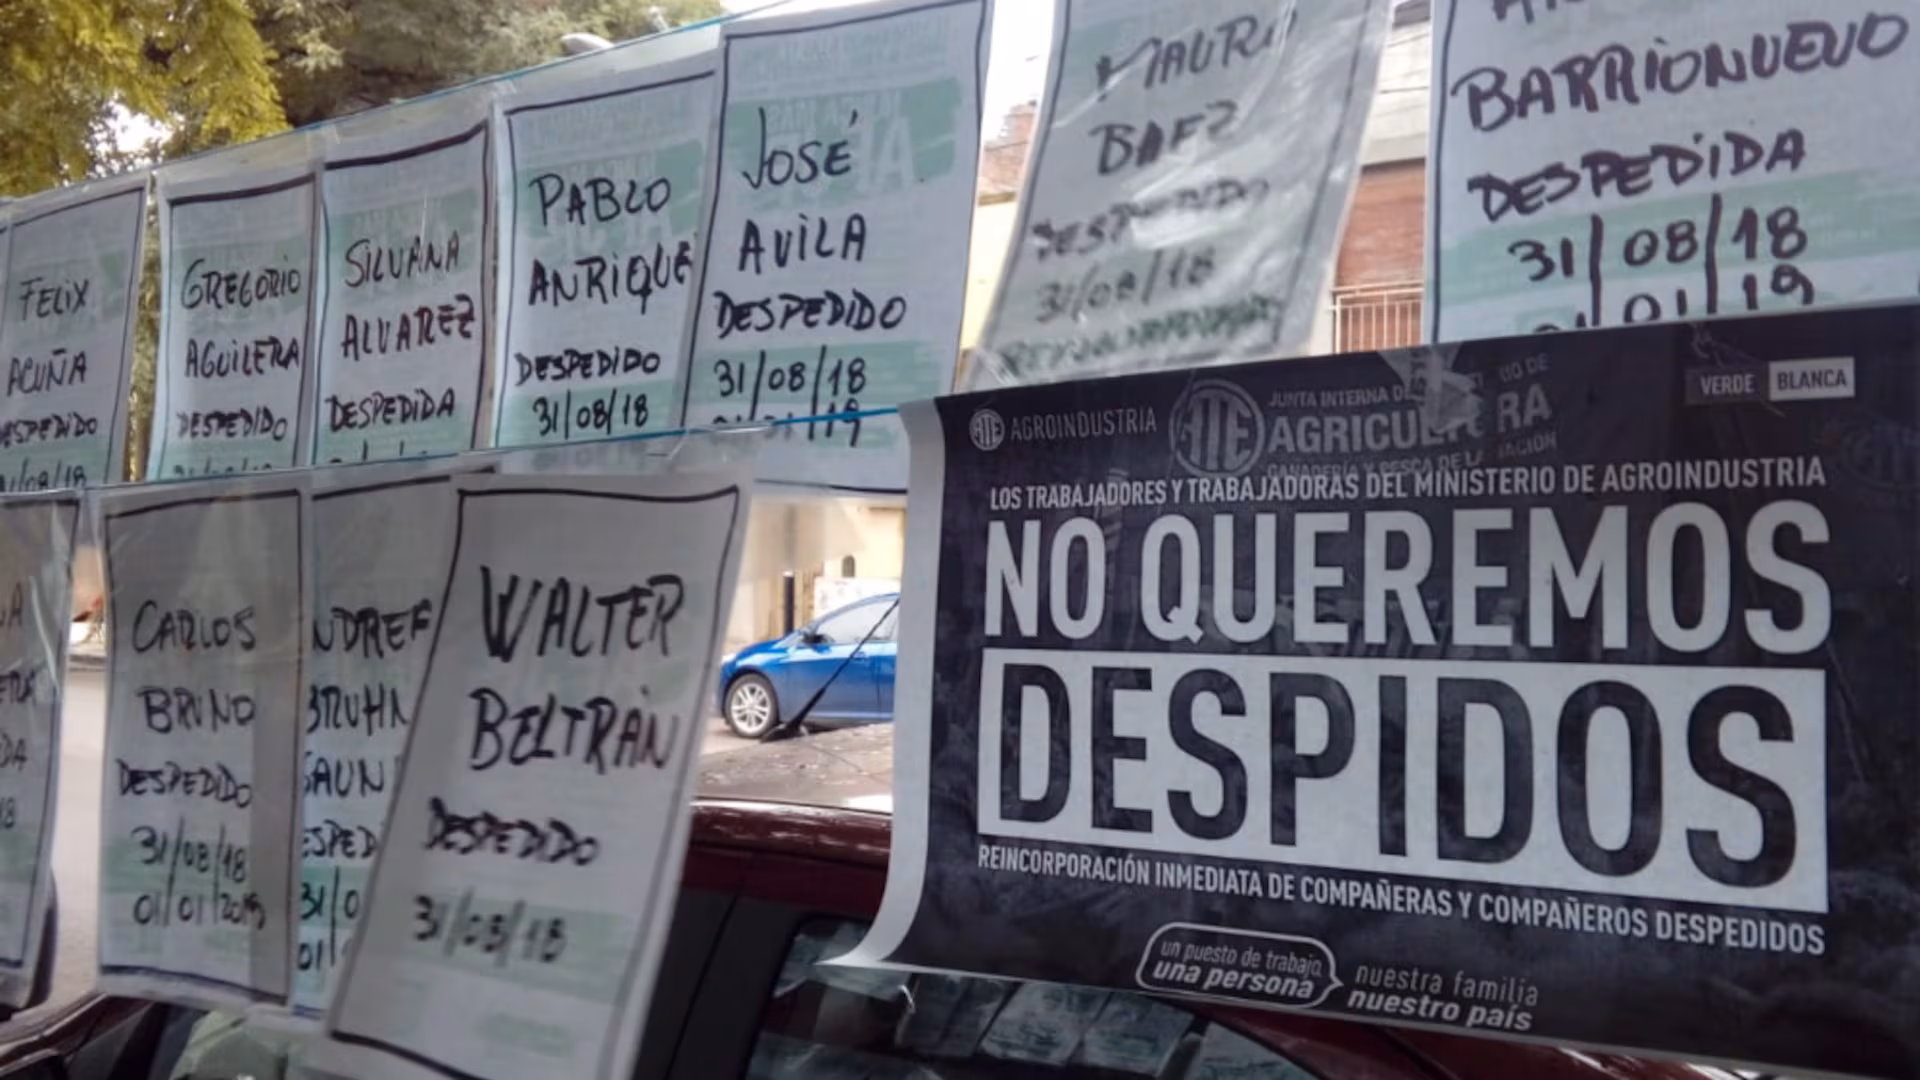 FELIX
ACUÑA
GREGORIO
AGUILERA
DESPEDIDO
SILVANA
ALVAREZ
DESPEDIDA
PABLO
ANRIQUE
DESPEDIDO
31/08/18
JOSÉ
AVILA
DESPEDIDO
31/08/18
MAURO
BAEZ
31/08/18
BARRIONUEVO
DESPEDIDA
31/08/18
01/19
CARLOS
BRUNO
DESPEDIDO
31/08/18
01/01/2019
BRUHN
WALTER
BELTRÁN
DESPEDIDO
31/08/18
ATE AGROINDUSTRIA
ATE
JUNTA INTERNA
VERDE BLANCA
LOS TRABAJADORES Y TRABAJADORAS DEL MINISTERIO DE AGROINDUSTRIA
NO QUEREMOS
DESPIDOS
REINCORPORACIÓN INMEDIATA DE COMPAÑERAS Y COMPAÑEROS DESPEDIDOS
un puesto de trabajo
una persona
nuestra familia
nuestro país